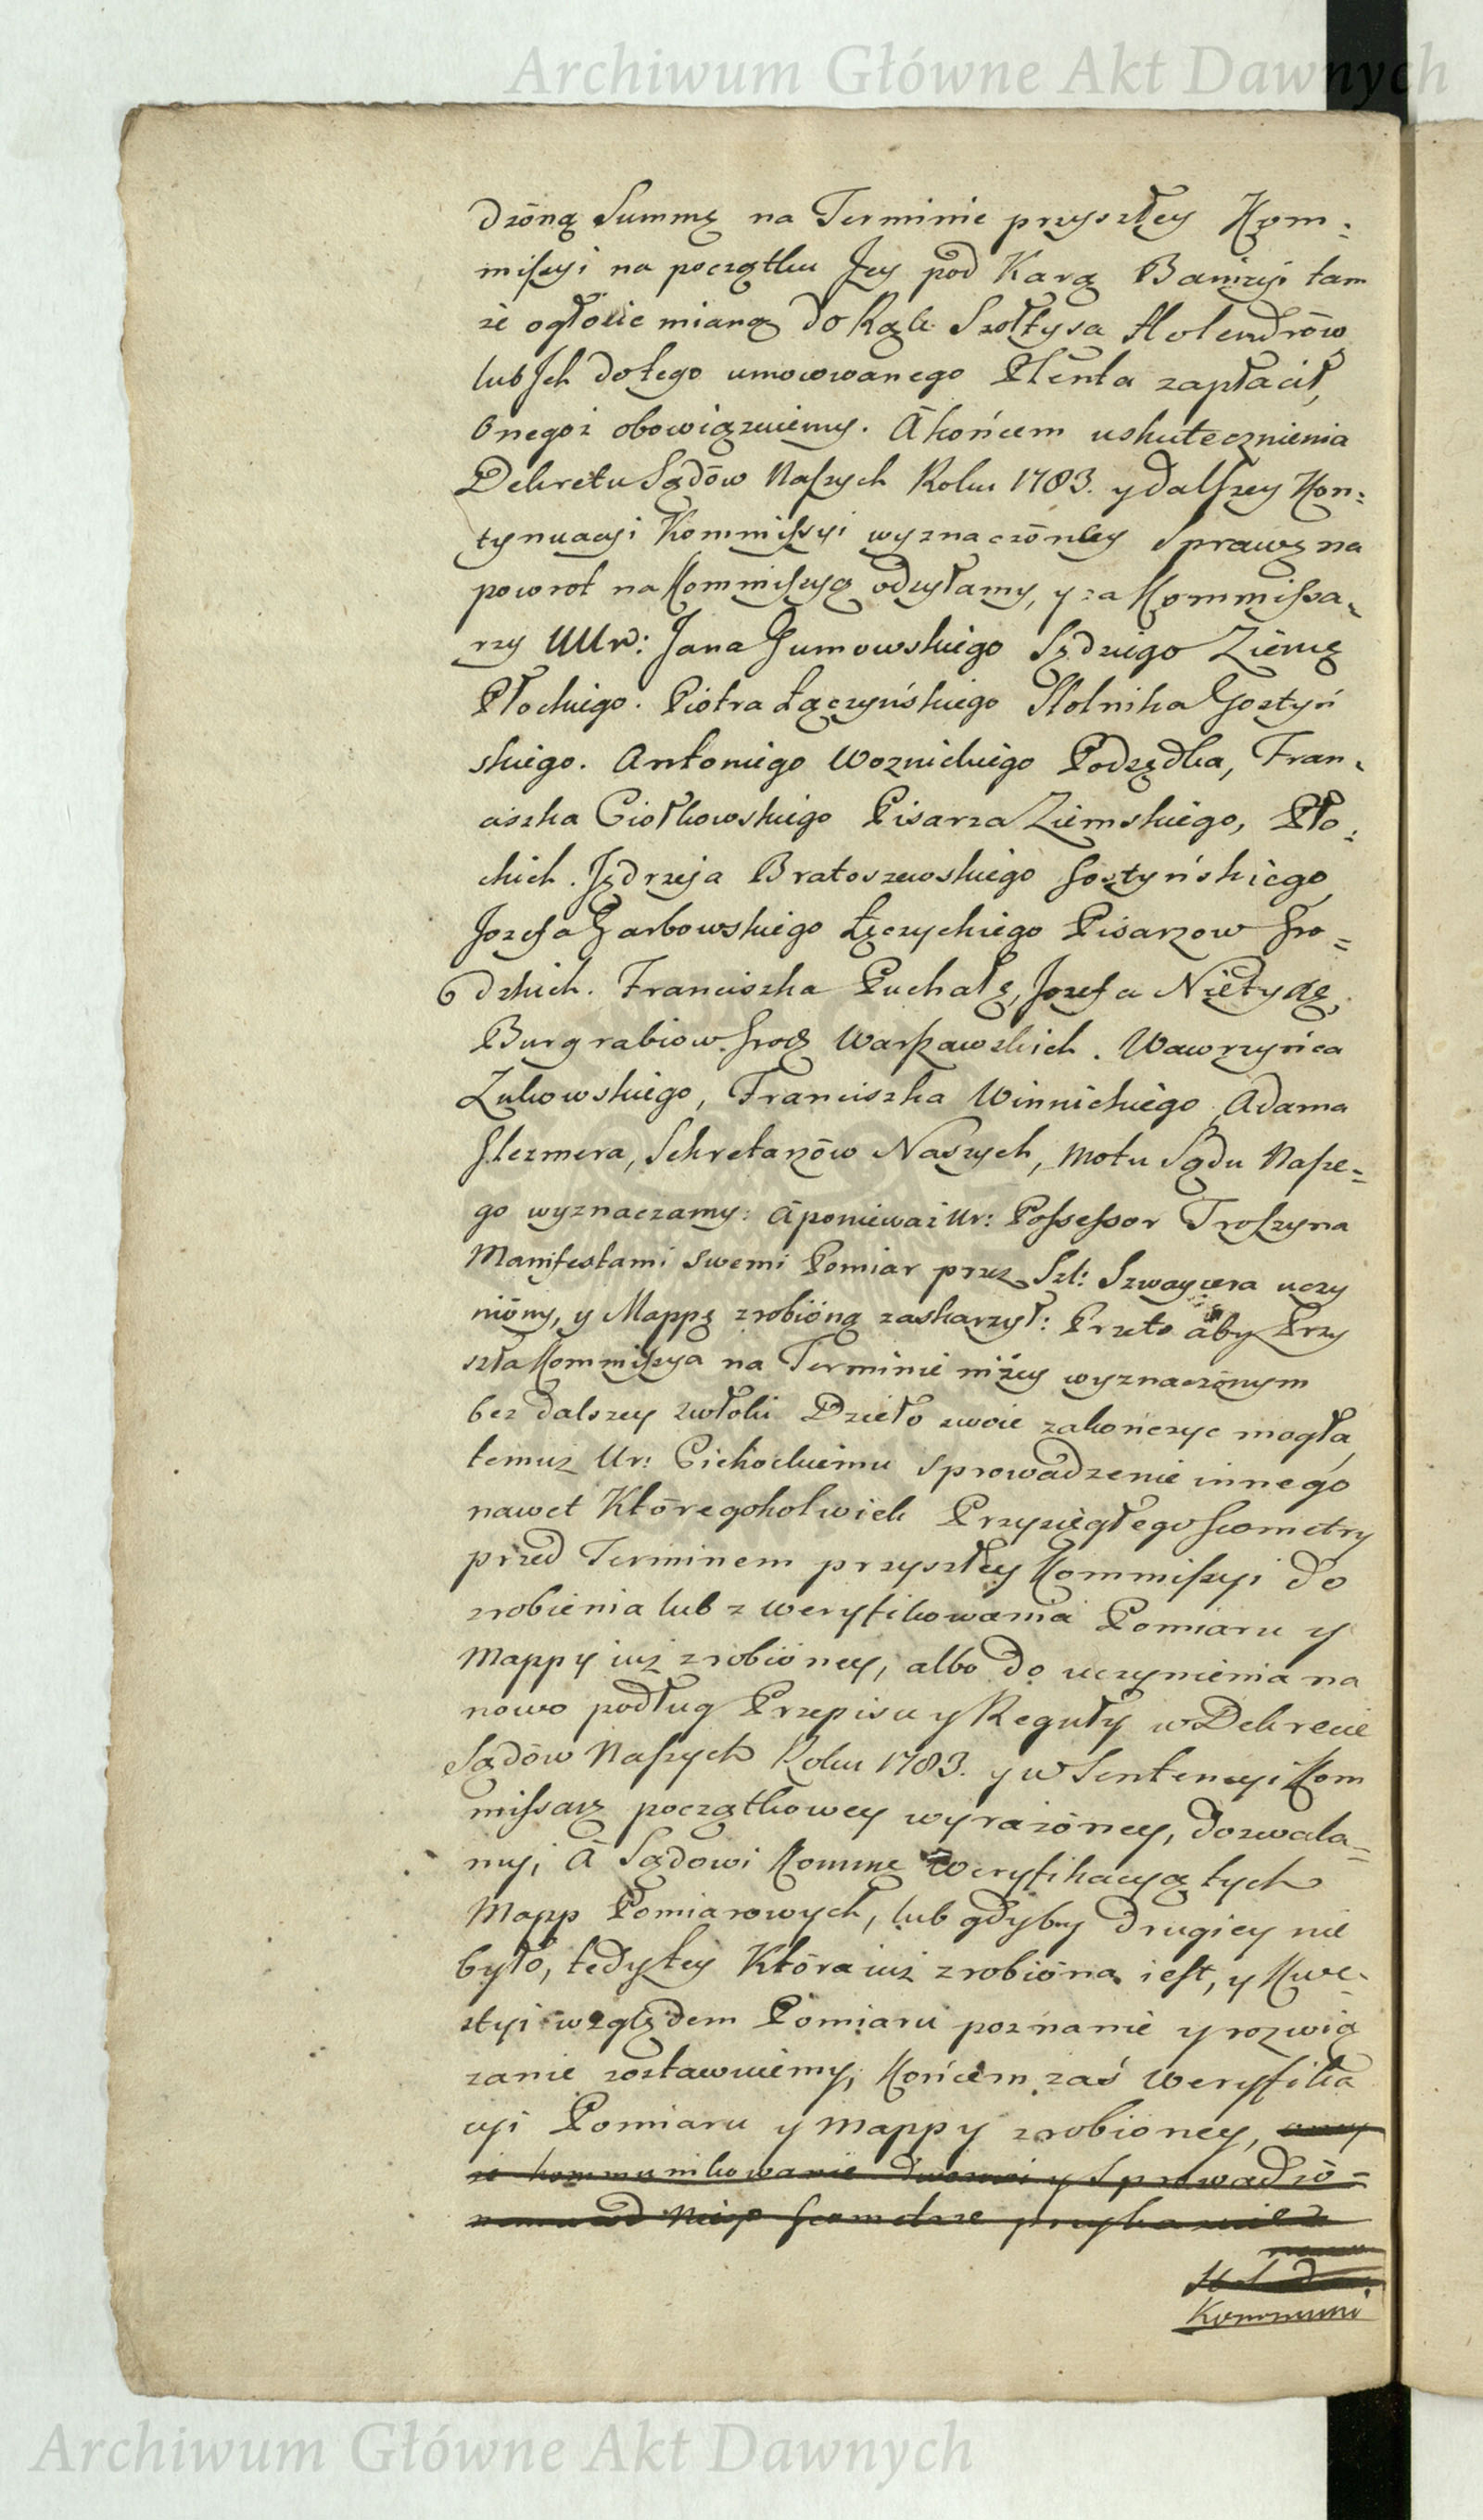 Archiwum Główne Akt Dawnych
dzóną Summę na Terminie przyszłey Kom:
mißyi na początku Jey pod Karą Banizyi tam
że ogłosić mianą do Rąk Szołtysa Holendrów
lub Jch do tego umocowanego Plenta zapłacił,
Onegoż obowiązuiemy. A końcem uskutecznienia
Dekretu Sądów Naszych Roku 1783. y dalszey Kon:
tynuacyi Kommißyi wyznaczóney Sprawę na
powrot na Kommißyą odsyłamy, y za Kommißa:
rzy UUr: Jana Gumowskiego Sędziego Ziemę
Płockiego. Piotra Łączyńskiego Stolnika Gostyń
skiego. Antoniego Woznickiego Podsędka, Fran:
ciszka Ciołkowskiego Pisarza Ziemskiego, Pło:
ckich. Jędrzeja Bratoszewskiego Gostyńskiego,
Jozefa Garbowskiego Łęczyckiego Pisarzow Gro=
dzkich. Franciszka Puchałę, Jozefa Nietyxę,
Burgrabiow Grodz Warszawskich. Wawrzyńca
Zukowskiego, Franciszka Winnickiego, Adama
Glezmera, Sekretarzów Naszych, motu Sądu Nasze=
go wyznaczamy: A ponieważ Ur: Poßeßor Troszyna
Manifestami swemi Pomiar przez Szl: Szwaycera uczy
nióny, y Mappę zrobióną zaskarzył: Przeto aby Przy
szła Kommißya na Terminie niżey wyznaczónym
bez dalszey zwłoki Dzieło swoie zakończyc mogła,
temuz Ur: Cichockiemu sprowadzenie innego
nawet Któregokolwiek Przysięgłego Geometry
przed Terminem przyszłey Kommißyi do
zrobienia lub zweryfikowania Pomiaru y
Mappy iuż zrobióney, albo do uczynienia na
nowo podług Przepisu y Reguły w Dekrecie
Sądów Naszych Roku 1783. y w Sentencyi Kom
mißarz początkowey wyrażóney, dozwala=
my, A Sądowi Komme Weryfikacyą tych
Mapp Pomiarowych, lub gdyby drugiey nie
było, tedy tey Która iuż zrobióna iest, y Kwe:
styi względem Pomiaru poznanie y rozwią
zanie zostawuiemy, Końcem zaś Weryfika
cyi Pomiaru y Mappy zrobioney,
kommunikowanie Dworowi y sprowadzó=
od Niego Geometrze
Kommuni
Archiwum Główne Akt Dawnych